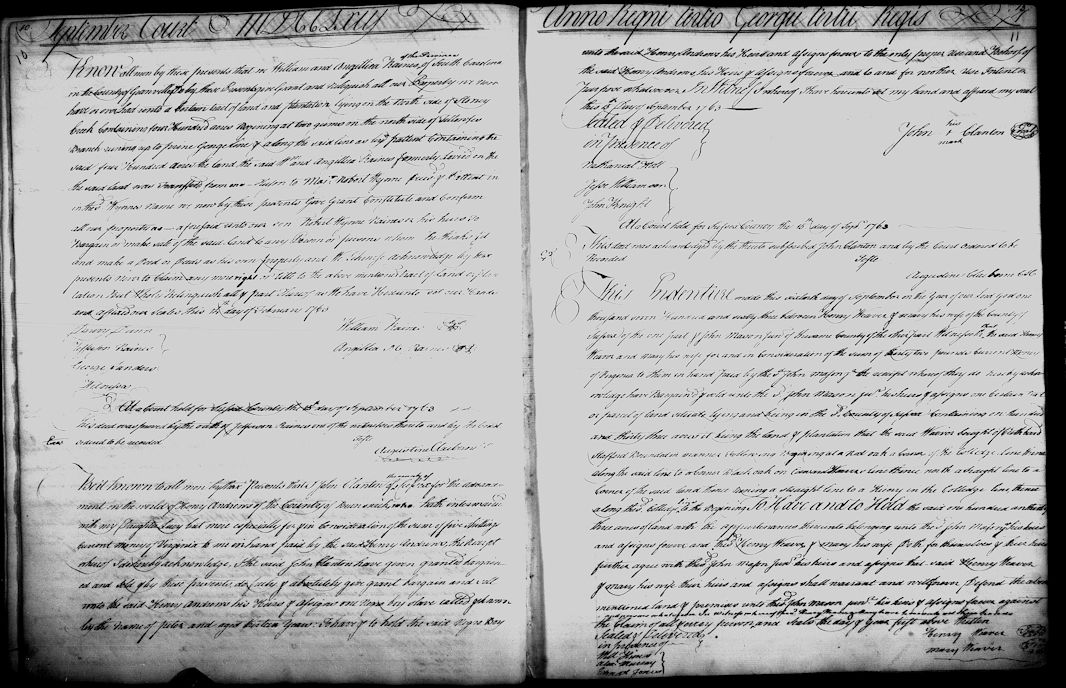 September Court MDCCLXIII
10
Know all men by these presents that we William and Angillica Raines of the Province of South Carolina
in the County of Granville do by these Presents give Grant and relinquish all our Property we now
have or ever had unto a Certain tract of land and plantation lying on the North side of Stoney
Creek Containing four Hundred acres Begining at two gums on the north side of
Branch runing up to prince George line & along the said line as by patent Containing the
said four Hundred Acres the land the said Wm. and Angillica Raines formerly lived on the
the said land was from one person to Majr. Robert Wynne & patent in
in the sd. Wynnes Name we now by these presents Give Grant Constitute and Confirm
all our property as aforesaid unto our son Robert Wynne Raines or her heirs to
bargain or make sale of the said Land to any Person or persons whom he thinks fit
and make a Deed or Deeds as his own property and We acknowledge by these
presents never to Claim any more right or title to the above mentioned tract of Land
but Wholy Relinquish all & part thereof as We have Hereunto set our hands
and affixed our seales this day of February 1763
William Raines Seal
Angillica Raines Seal
Raines
George Sanders
Witnesses
At a Court held for Sussex County the 15th day of September 1763
This deed was proved by the oath of Raines one of the witnesses thereto and by the Court
ordered to be recorded
Teste
Augustine Claiborne
Exd.
Be it known to all men by these Presents that I John Clanton of the County of Sussex for the advance-
ment in the world of Henry Andrews of the County of Brunswick who hath intermarried
with my Daughter Lucy but more especially for & in Consideration of the sum of five Shillings
current money of Virginia to me in hand paid by the said Henry Andrews the Receipt
whereof I do hereby acknowledge I the said John Clanton have given granted bargain-
ed and sold & by these presents do fully & absolutely give grant bargain and sell
unto the said Henry Andrews his Heirs & Assigns one Negro boy slave called & known
by the Name of peter and aged thirteen Years To have & to hold the said Negro Boy
Anno Regni tertio Georgii tertii Regis
11
unto the said Henry Andrews his Heirs and assigns forever to the only proper use and Behoof of
the said Henry Andrews his Heirs & Assigns forever and to and for no other Use Intent or
purpose whatsoever In Witness Whereof I have hereunto set my hand and affixed my seal
this 15 day of September 1763
Sealed & Delivered
in presence of
John his mark Clanton Seal
Nathaniel Holt
Jesse Williamson
John Knight
At a Court held for Sussex County the 15 Day of Sepr. 1763
This deed was acknowledged by the thereto subscribed John Clanton and by the Court ordered to be
Recorded
Teste
Augustine Claiborne
This Indenture made this sixteenth day of September in the Year of our Lord god one
thousand seven Hundred and sixty three between Henry Weaver & mary his wife of the County of
Sussex of the one part & John Mason Junr. of the County of the other part Witnesseth that the said Henry
Weaver and Mary his wife for and in Consideration of the sum of thirty two pounds Current Money
of Virginia to them in hand paid by the sd. John mason jr. the receipt whereof they do hereby acknow-
ledge have Bargained & sold unto the sd. John Mason Junr. his heirs & assigns one Certain tract
or parcel of land situate lying and being in the sd. County of Sussex Containing one hundred
and thirty three acres it being the land & plantation that the said Weaver bought of
Stafford Bounded in manner following Begining at a Red oak a Corner of the Colledge line thence
along the said line to a Corner Black oak on Edward Weavers line thence north a straight line to a
Corner of the said land thence runing a straight line to a Hicory in the Colledge line thence
along the sd. Colledge to the Begining To Have and to Hold the said one hundred and thirty
three acres of land with the appurtenances thereunto belonging unto the sd. John Mason junr. his heirs
and assigns forever and the sd. Henry Weaver & mary his wife doth for themselves & their heirs
further agree with the sd. John Mason junr. his heirs and assigns that said Henry Weaver
& mary his wife their heirs and assigns shall warrant and will forever Defend the above
mentioned land & premises unto the sd. John Mason junr. his heirs & assigns forever against
the Claim of all & every person
and Seals the day & Year first above Written
Sealed & Delivered
in presence of
Henry Weaver Seal
mary Weaver Seal